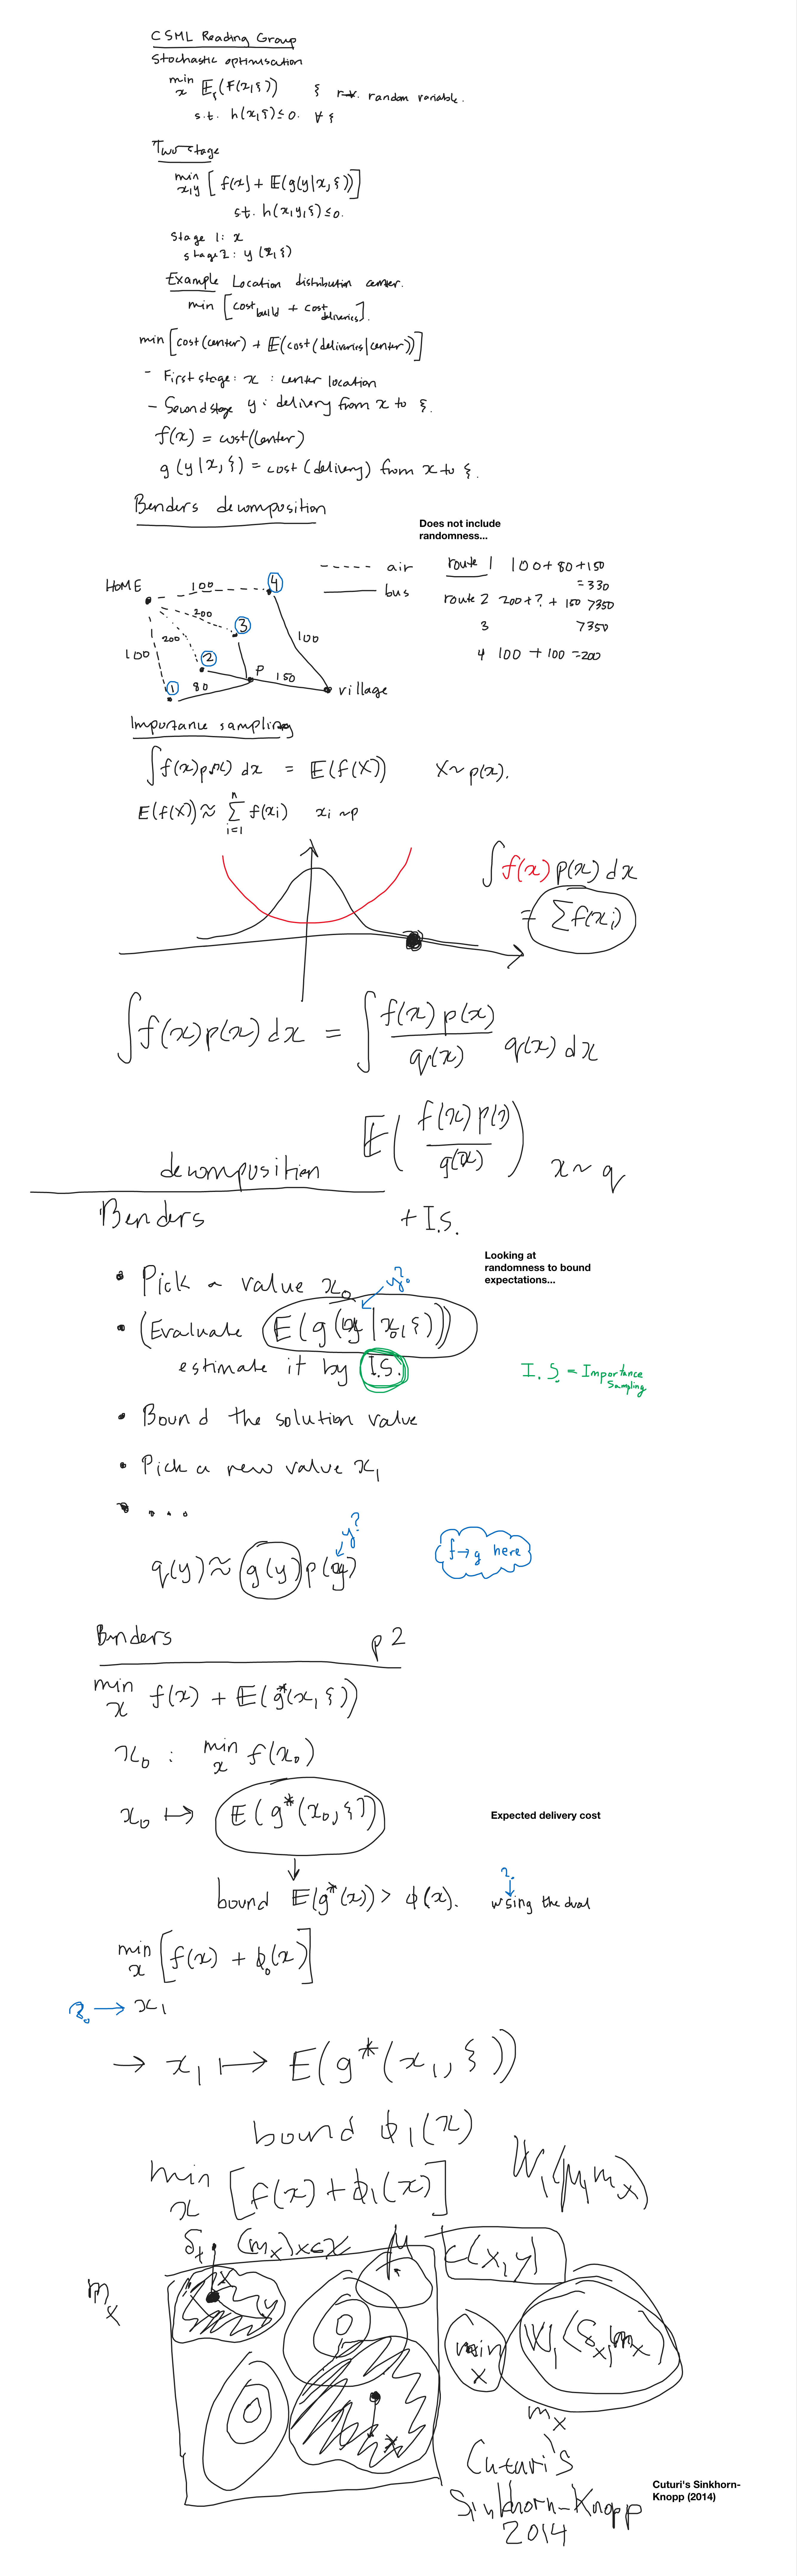 CSML Reading Group
Stochastic optimisation
min x 𝔼ξ(F(x,ξ)) ξ r.v. random variable.
s.t. h(x,ξ) ≤ 0. ∀ ξ
Two stage
min x,y [f(x) + 𝔼(g(y|x,ξ))]
st. h(x,y,ξ) ≤ 0.
Stage 1: x
stage 2: y (x,ξ)
Example Location distribution center.
min [cost build + cost deliveries].
min [cost(center) + 𝔼(cost(deliveries|center))]
- First stage: x : center location
- Second stage y : delivery from x to ξ.
f(x) = cost(center)
g(y|x,ξ) = cost(delivery) from x to ξ.
Benders decomposition
Does not include
randomness...
HOME
100
4
200
3
200
2
100
1
80
P
150
100
village
---- air
—— bus
route 1 100+80+150
=330
route 2 200+?+150 >350
3 >350
4 100+100=200
Importance sampling
∫f(x)p(x) dx = 𝔼(f(X)) X~p(x).
E(f(X)) ≈ n Σ i=1 f(xi) xi ~p
∫f(x)p(x)dx
= Σf(xi)
∫f(x)p(x)dx = ∫ f(x)p(x)/q(x) q(x)dx
𝔼(f(x)p(x)/q(x)) x~q
decomposition
Benders + I.S.
Looking at
randomness to bound
expectations...
• Pick a value x0
y?
• (Evaluate E(g(y|x0,ξ))
estimate it by I.S.
I.S. = Importance
Sampling
• Bound the solution value
• Pick a new value x1
• ...
y?
q(y) ≈ g(y) p(y)
f→g here
Benders p2
min x f(x) + 𝔼(g*(x,ξ))
x0 : min x f(x0)
x0 ↦ 𝔼(g*(x0,ξ))
Expected delivery cost
bound 𝔼(g*(x)) > ϕ(x).
?
using the dual
min x [f(x) + ϕ0(x)]
→ x1
→ x1 ↦ E(g*(x1,ξ))
bound ϕ1(x)
min x [f(x) + ϕ1(x)]
W1(μ,mx)
δx (mx)x∈X μ
c(x,y)
mx
x
y
min x W1(δx,mx)
mx
x
Cuturi's
Sinkhorn-Knopp
2014
Cuturi's Sinkhorn-
Knopp (2014)